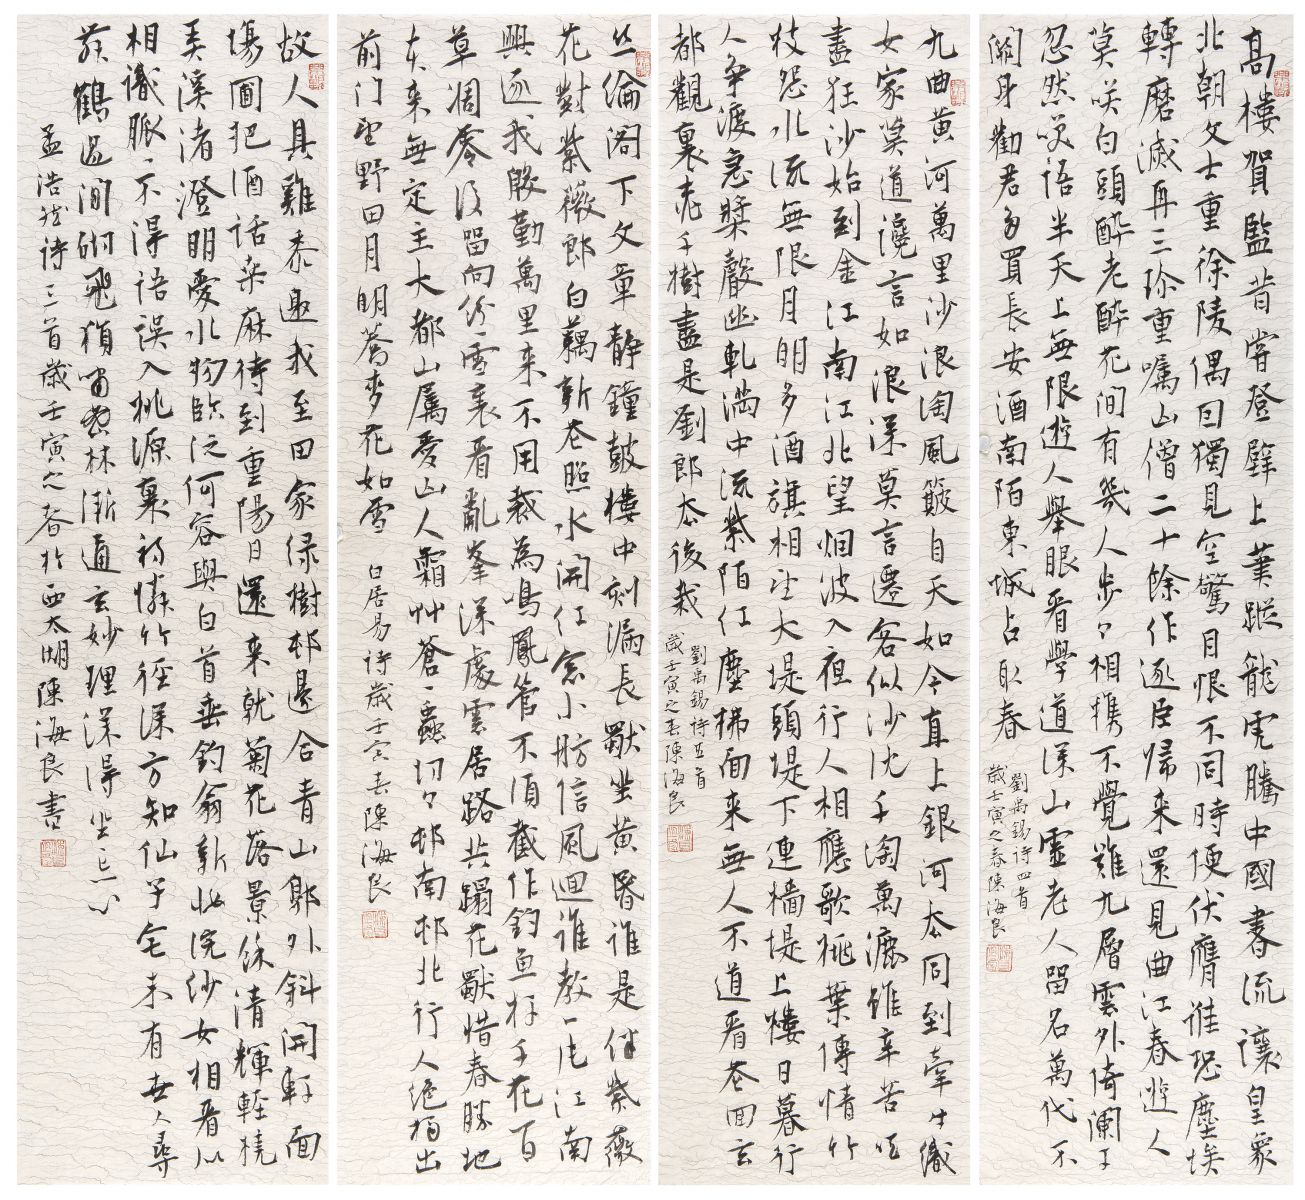 高樓賀監昔嘗登壁上筆蹤龍虎騰中國書流讓皇象
北朝文士重徐陵偶因獨見空驚目恨不同時便伏膺唯恐塵埃
轉磨滅再三珍重囑山僧二十餘作逐臣歸來還見曲江春遊人
莫笑白頭醉老醉花間有幾人步々相攜不覺難九層雲外倚闌干
忽然笑語半天上無限遊人舉眼看學道深山虛老人留名萬代不
關身勸君多買長安酒南陌東城占取春
劉禹錫詩四首
歲壬寅之春陳海良
九曲黃河萬里沙浪淘風簸自天如今直上銀河去同到牽牛織
女家莫道讒言如浪深莫言遷客似沙沈千淘萬漉雖辛苦吹
盡狂沙始到金江南江北望烟波入夜行人相應歌桃葉傳情竹
枝怨水流無限月明多酒旗相望大堤頭堤下連檣堤上樓日暮行
人爭渡急槳聲幽軋滿中流紫陌紅塵拂面來無人不道看花回玄
都觀裏桃千樹盡是劉郎去後栽
劉禹錫詩五首
歲壬寅之春陳海良
絲綸閣下文章靜鐘鼓樓中刻漏長獸坐黃昏誰是伴紫薇
花對紫薇郎白藕新花照水開紅窗小舫信風迴誰教一片江南
興逐我殷勤萬里來不用裁為鳴鳳管不須截作釣魚竿千花百
草凋零後留向紛々雪裏看亂峯深處雲居路共蹋花獸惜春勝地
本來無定主大都山屬愛山人霜艸蒼々蟲切々村南村北行人絕獨出
前門望野田月明蕎麥花如雪
白居易詩歲壬寅春陳海良
故人具雞黍邀我至田家綠樹邨邊合青山郭外斜開軒面
場圃把酒話桑麻待到重陽日還來就菊花落景餘清輝輕橈
弄溪渚澄明愛水物臨泛何容與白首垂釣翁新妝浣紗女相看似
相識脈々不得語誤入桃源裏初憐竹徑深方知仙子宅未有世人尋
舞鶴過閒砌飛猿嘯密林漸通玄妙理深得坐忘心
孟浩然詩三首歲壬寅之春於西太湖陳海良書